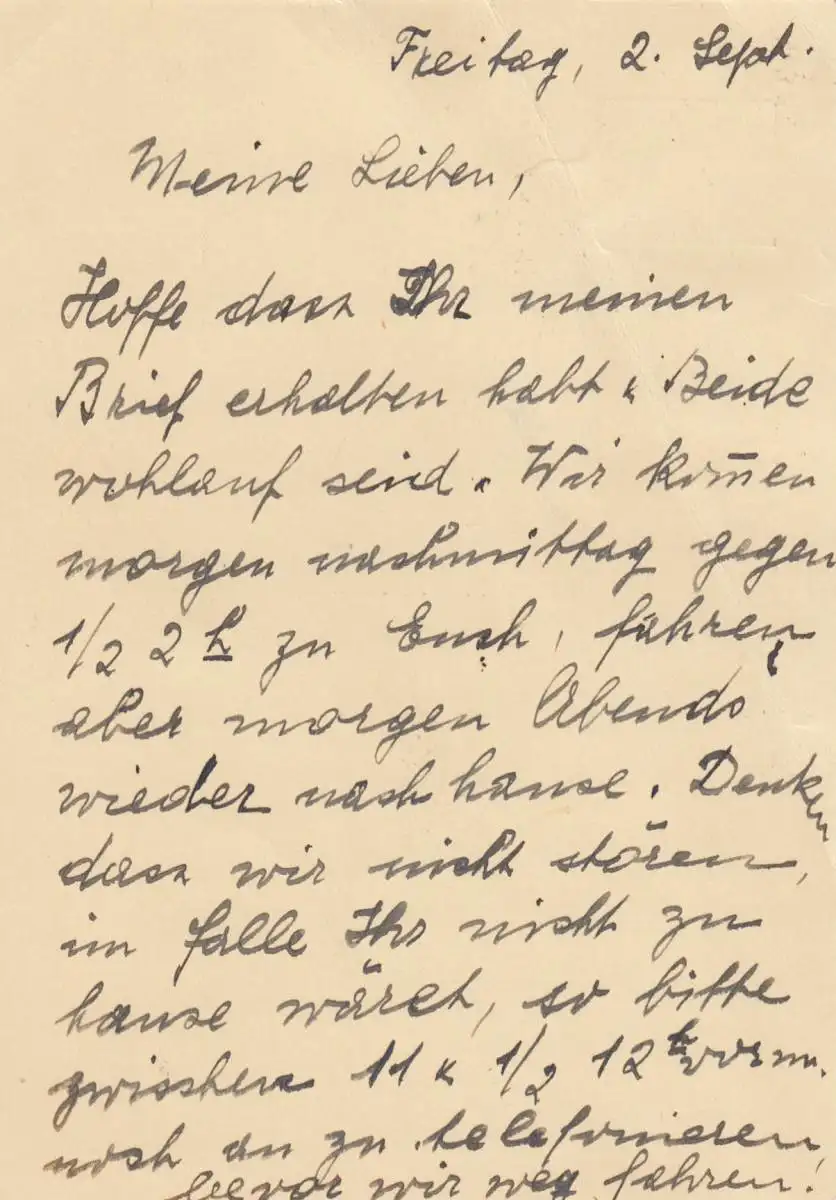 Freitag, 2. Sept.
Meine Lieben,
Hoffe dasz Ihr meinen
Brief erhalten habt u Beide
wohlauf seid. Wir kom̅en
morgen nachmittag gegen
1/2 2 h zu Euch, fahren
aber morgen Abends
wieder nach hause. Denken
dasz wir nicht stören,
im falle Ihr nicht zu
hause wäret, so bitte
zwischen 11 u 1/2 12 h vorm.
noch an zu telefonieren
bevor wir weg fahren!